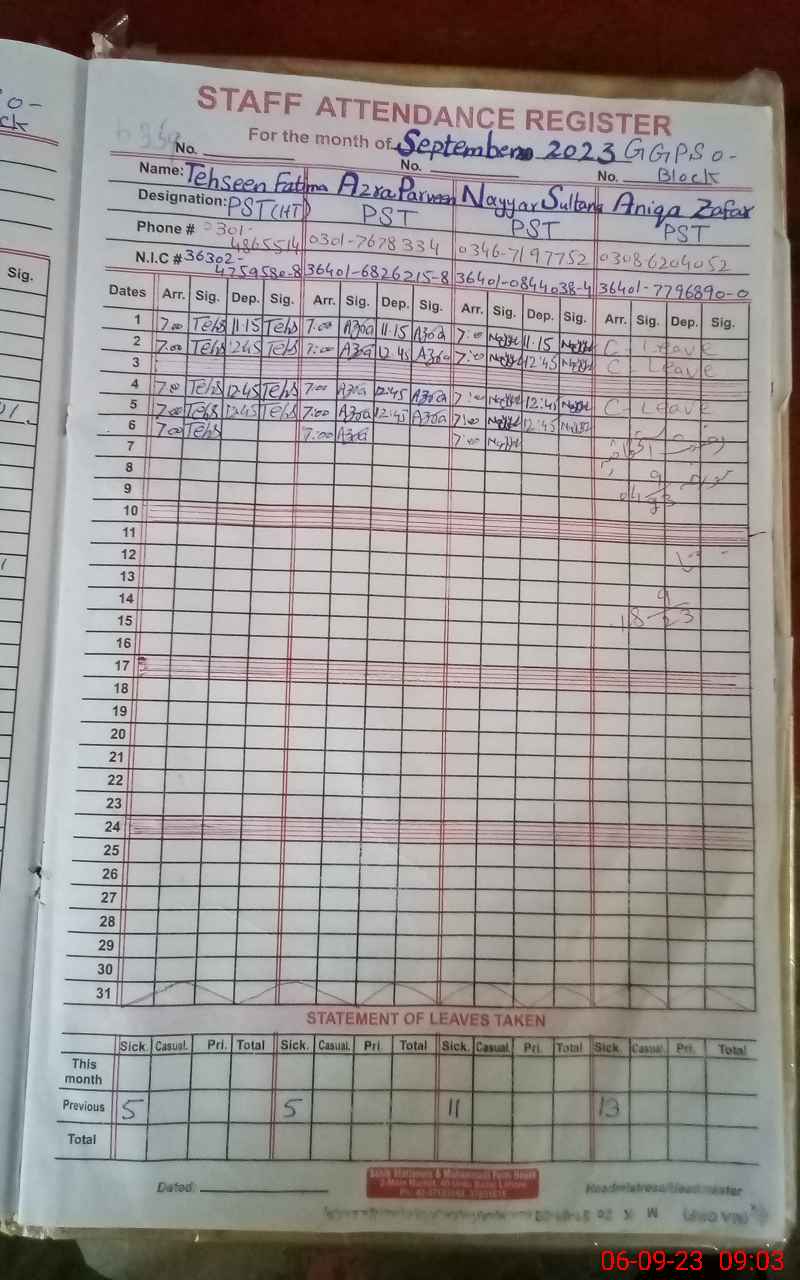 STAFF ATTENDANCE REGISTER
For the month of September 2023 GGPS O-Block
No. No. No.
Name: Tehseen Fatima Azra Parveen Nayyar Sultana Aniqa Zafar
Designation: PST(HT) PST PST PST
Phone # 0301-4865514 0301-7678334 0346-7197752 03086204052
N.I.C # 36302-4759580-8 36401-6826215-8 36401-0844038-4 36401-7796890-0
Dates Arr. Sig. Dep. Sig. Arr. Sig. Dep. Sig. Arr. Sig. Dep. Sig. Arr. Sig. Dep. Sig.
1 7:00 Tehs 11:15 Tehs 7:00 Azra 11:15 Azra 7:00 11:15 C. Leave
2 7:00 Tehs 12:45 Tehs 7:00 Azra 12:45 Azra 7:00 12:45 C. Leave
3
4 7:00 Tehs 12:45 Tehs 7:00 Azra 12:45 Azra 7:00 12:45 C. Leave
5 7:00 Tehs 12:45 Tehs 7:00 Azra 12:45 Azra 7:00 12:45
6 7:00 Tehs 7:00 Azra 7:00
7
8
9
10
11
12
13
14
15
16
17
18
19
20
21
22
23
24
25
26
27
28
29
30
31
STATEMENT OF LEAVES TAKEN
Sick. Casual. Pri. Total Sick. Casual. Pri. Total Sick. Casual. Pri. Total Sick. Casual. Pri. Total
This month
Previous 5 5 11 13
Total
Dated: Headmistress/Headmaster
Sig.
06-09-23 09:03